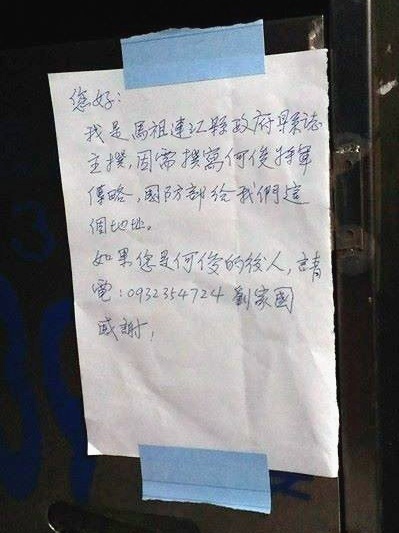 您好:
我是馬祖連江縣政府縣誌
主撰,因需撰寫何俊將軍
傳略,國防部給我們這
個地址。
如果您是何俊的後人,請
電:0932354724 劉家國
感謝!